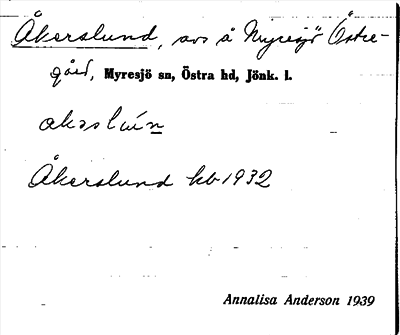 Åkerslund, avs å Myresjö Östre-
gård, Myresjö sn, Östra hd, Jönk. l.
Åkerslund kb 1932
Annalisa Anderson 1939